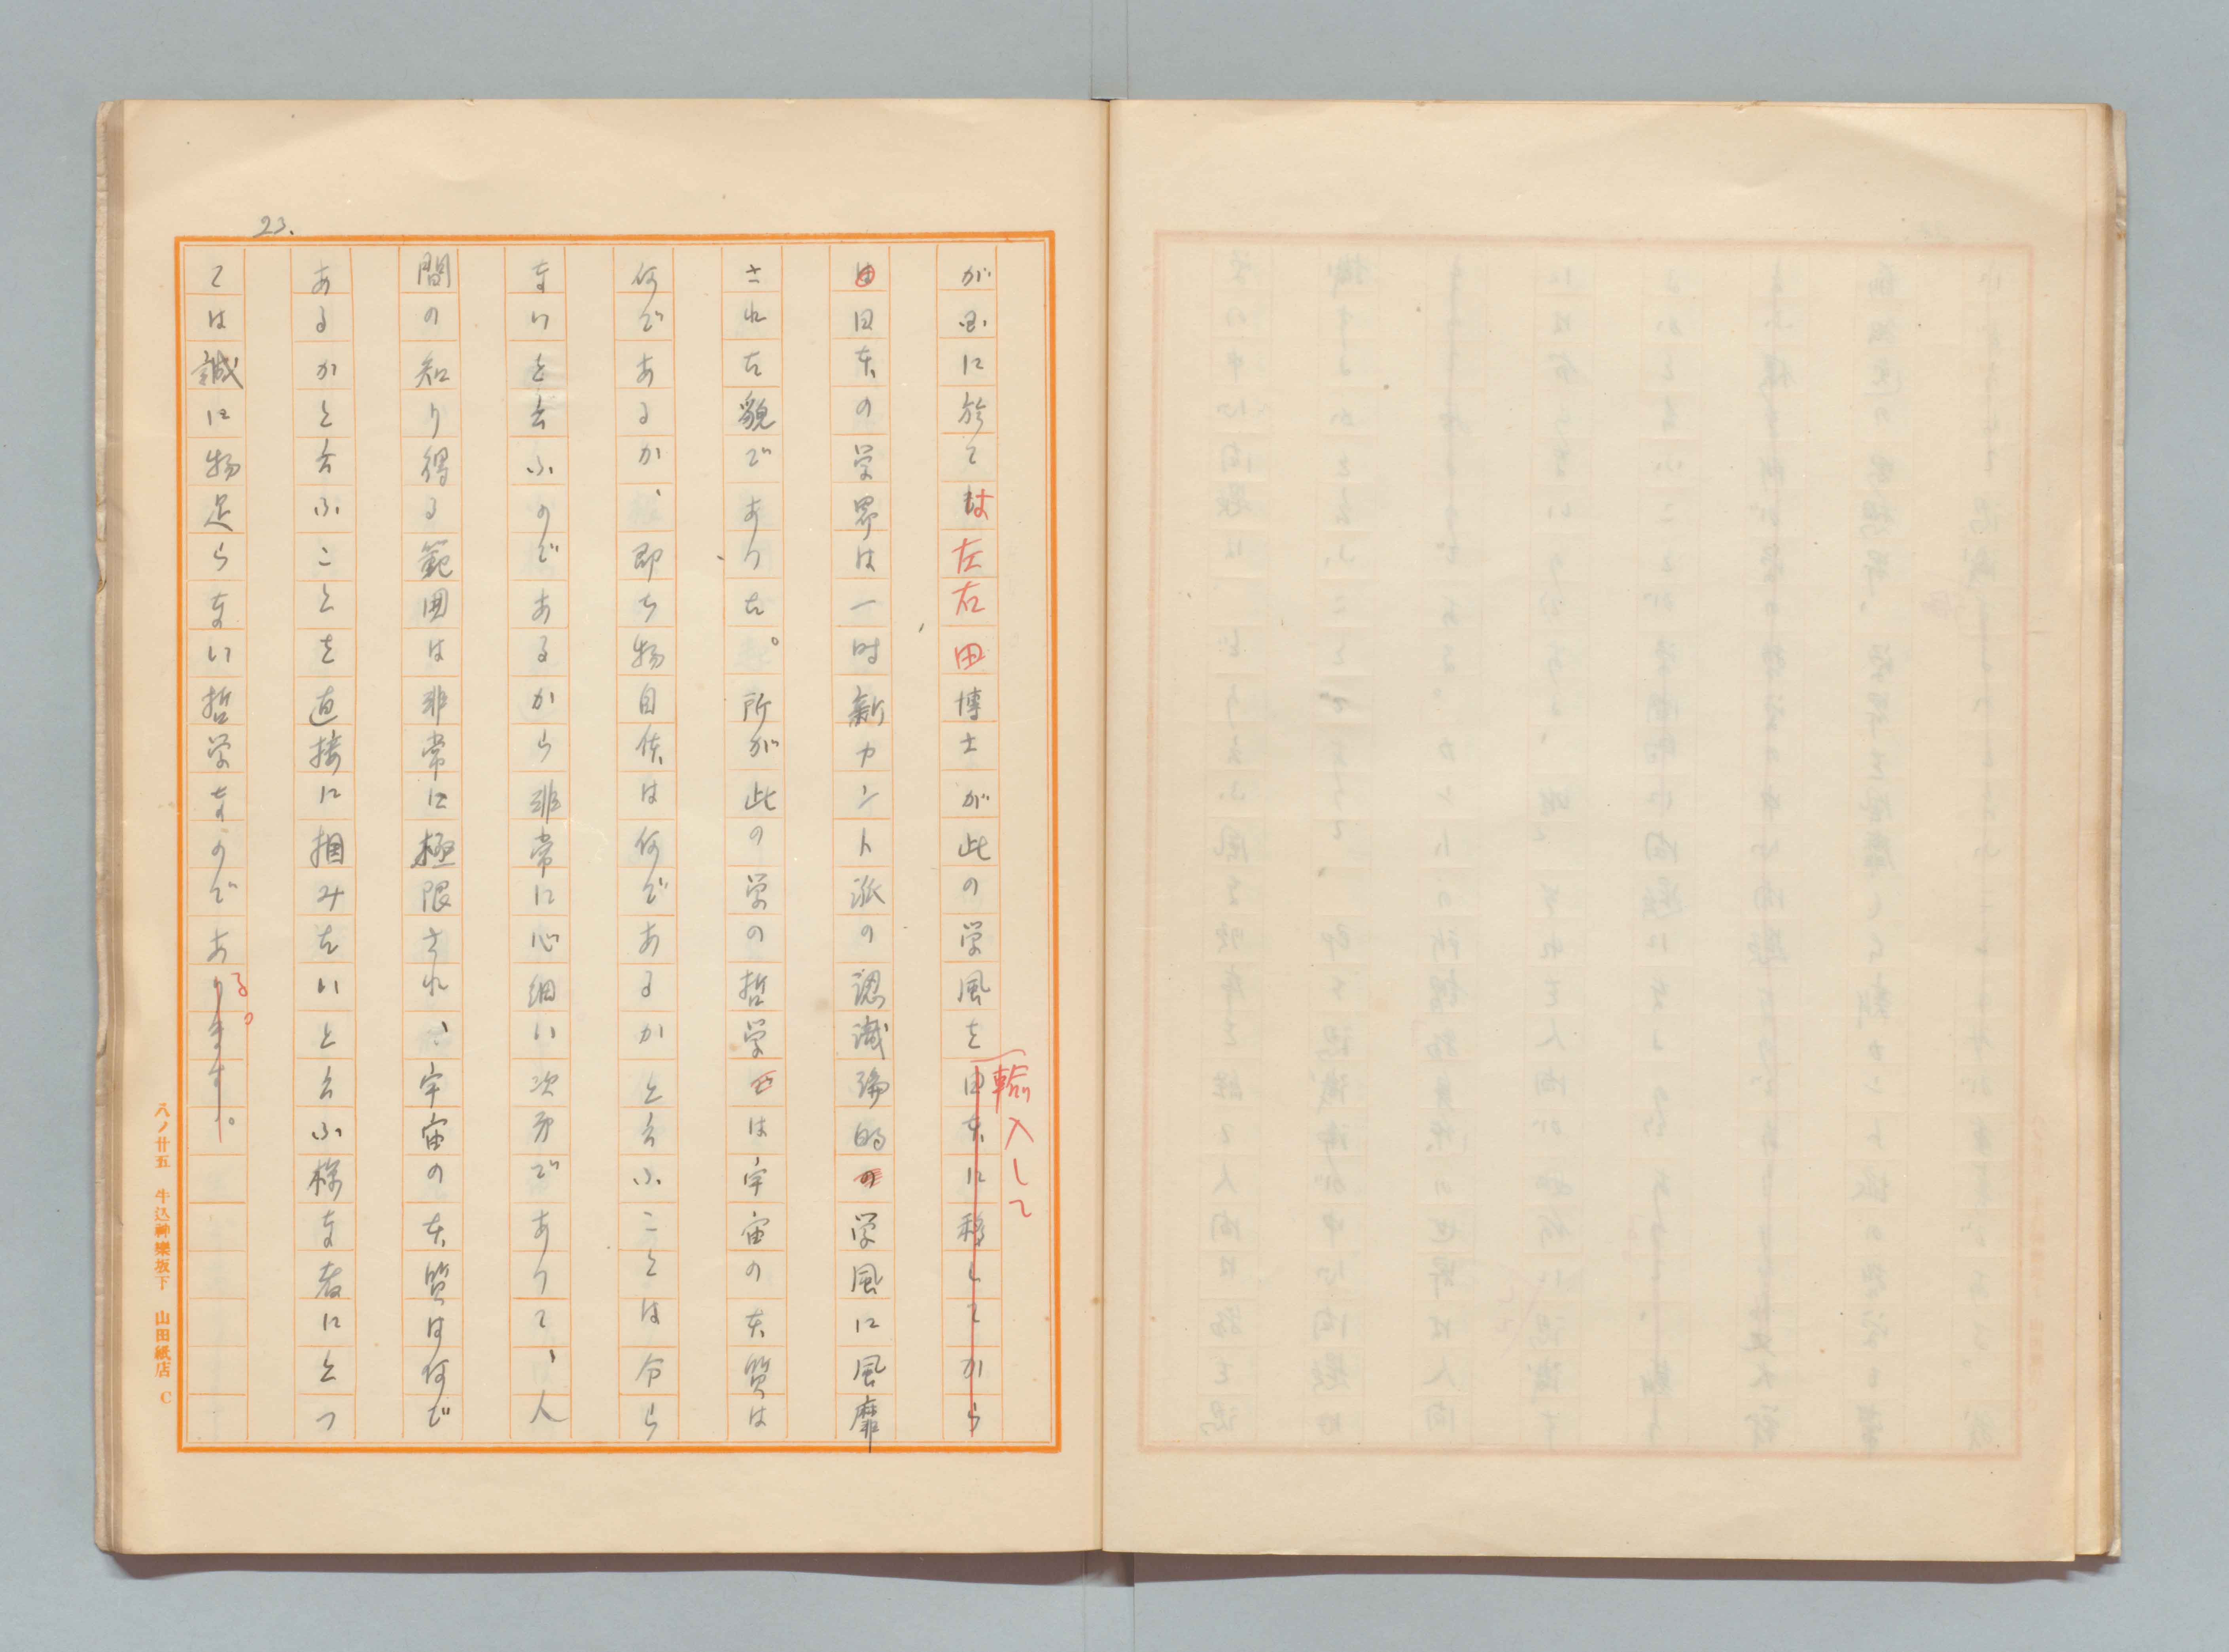 23.
が国に於ては左右田博士が此の学風を日本に移してから
輸入して
日本の学界は一時新カント派の認識論的の学風に風靡
された貌であつた。所が此の学の哲学では宇宙の本質は
何であるか、即ち物自体は何であるかと云ふことは分ら
ないと云ふのであるから非常に心細い次第でありて、人
間の知り得る範囲は非常に極限され、宇宙の本質は何で
あるかと云ふことを直接に掴みたいと云ふ様な者にとつ
ては誠に物足らないる哲学なのであります。
る。
八ノ廿五 牛込神樂坂下 山田紙店 C